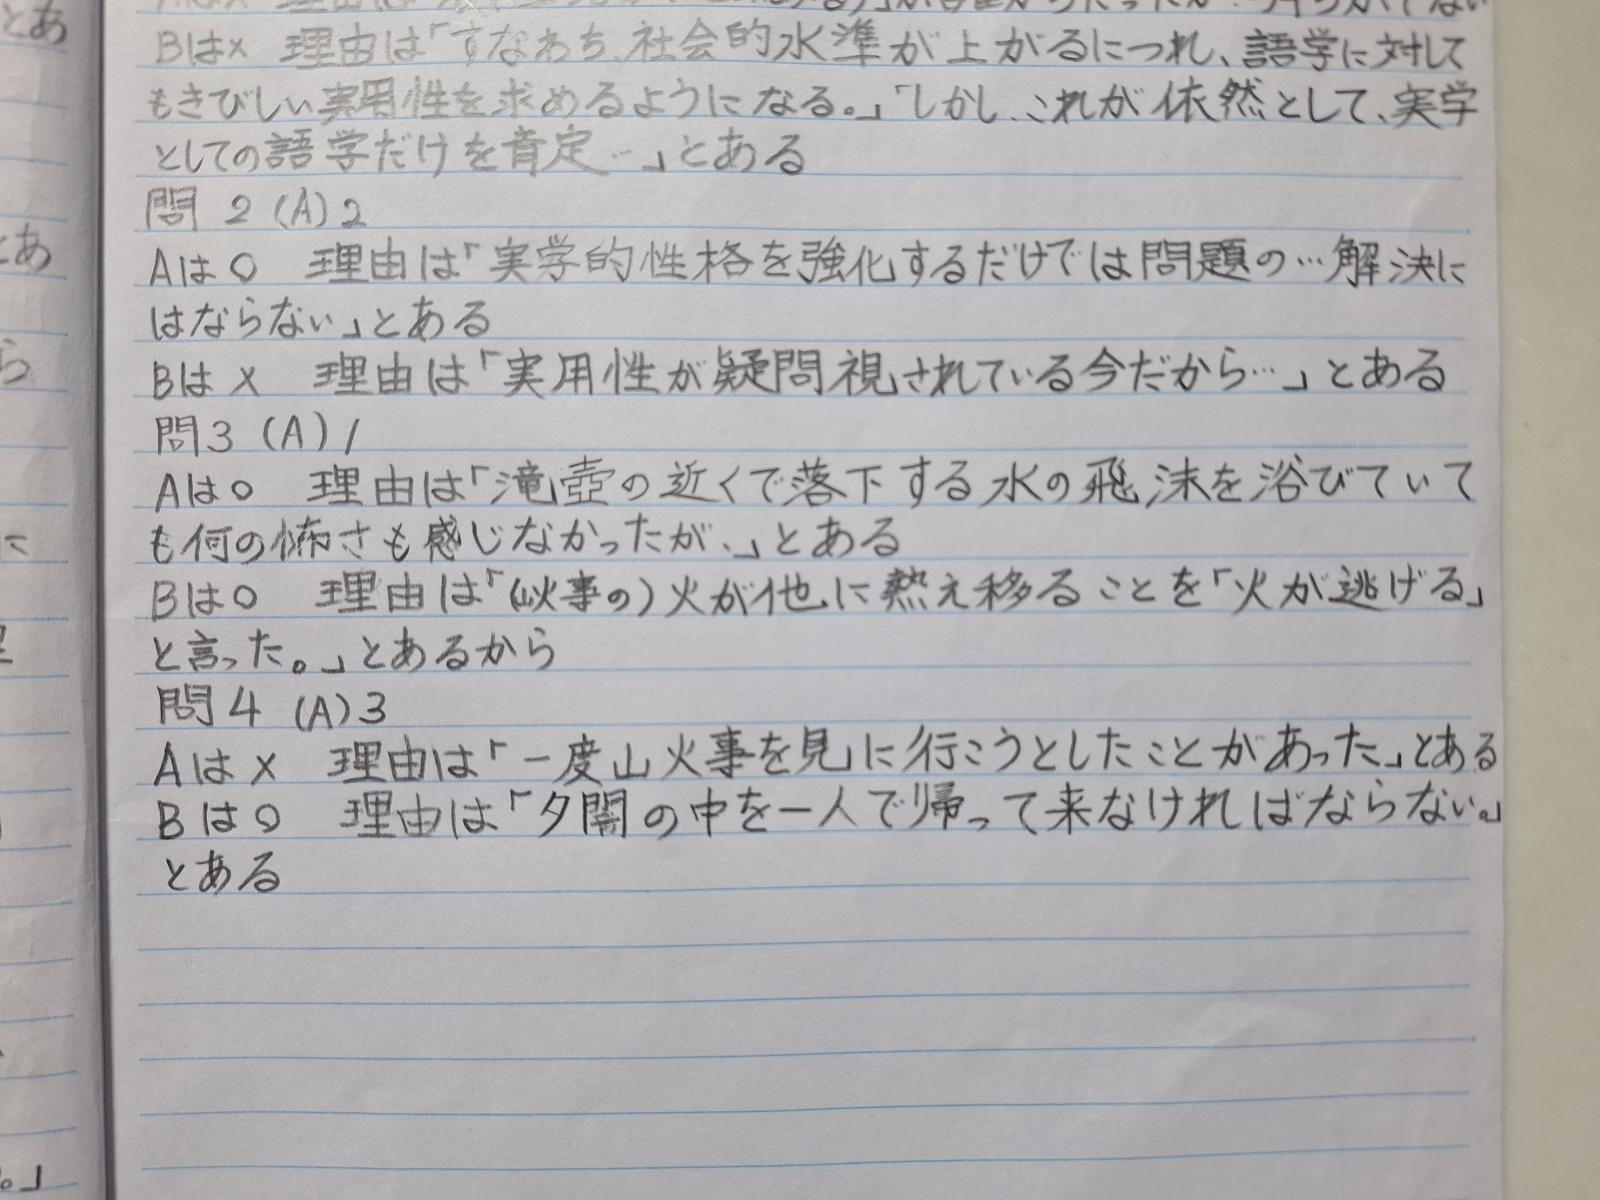 Bは× 理由は「すなわち、社会的水準が上がるにつれ、語学に対して
もきびしい実用性を求めるようになる。」「しかし、これが依然として、実学
としての語学だけを肯定…」とある
問2 (A)2
Aは○ 理由は「実学的性格を強化するだけでは問題の…解決に
はならない」とある
Bは× 理由は「実用性が疑問視されている今だから…」とある
問3 (A)1
Aは○ 理由は「滝壺の近くで落下する水の飛沫を浴びていて
も何の怖さも感じなかったが、」とある
Bは○ 理由は「(山火事の)火が他に熱え移ることを「火が逃げる」
と言った。」とあるから
問4 (A)3
Aは× 理由は「一度山火事を見に行こうとしたことがあった」とある
Bは○ 理由は「夕闇の中を一人で帰って来なければならない。」
とある
とあ
とあ
ら
に
。」